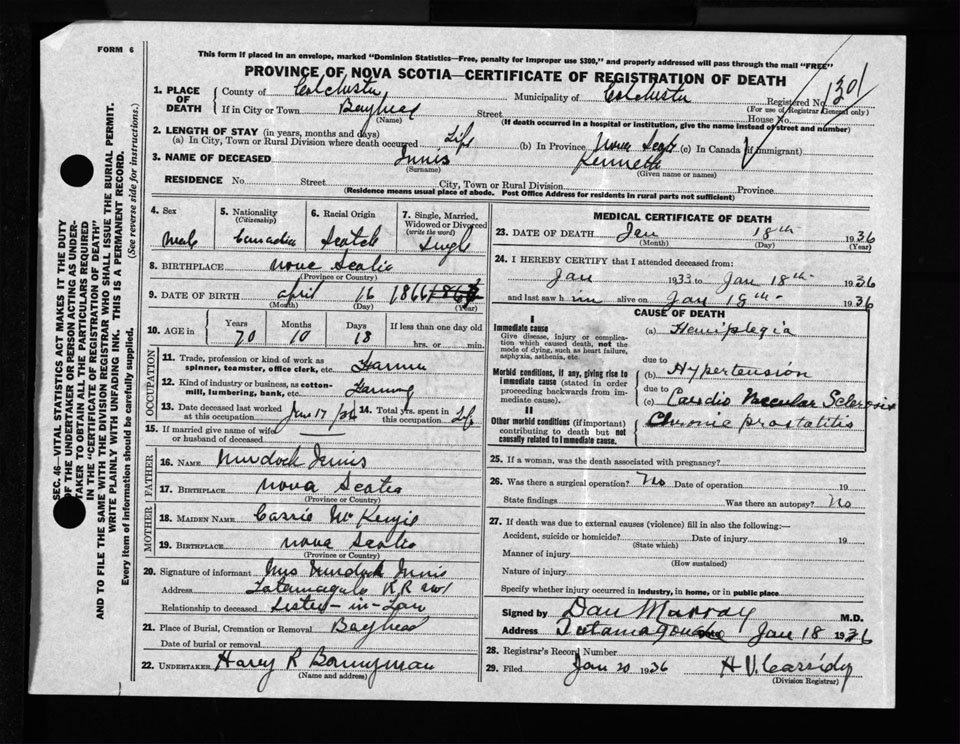 FORM 6
This form if placed in an envelope, marked "Dominion Statistics—Free, penalty for improper use $300," and properly addressed will pass through the mail "FREE"
PROVINCE OF NOVA SCOTIA—CERTIFICATE OF REGISTRATION OF DEATH
1301
1. PLACE OF DEATH { County of Colchester Municipality of Colchester Registered No.
(For use of Registrar General only)
If in City or Town Bayhead Street House No.
(Name) (If death occurred in a hospital or institution, give the name instead of street and number)
2. LENGTH OF STAY (in years, months and days)
(a) In City, Town or Rural Division where death occurred Life (b) In Province Nova Scotia (c) In Canada (if immigrant)
3. NAME OF DECEASED Innis Kenneth
(Surname) (Given name or names)
RESIDENCE No. Street City, Town or Rural Division Province
(Residence means usual place of abode. Post Office Address for residents in rural parts not sufficient)
4. Sex 5. Nationality (Citizenship) 6. Racial Origin 7. Single, Married, Widowed or Divorced (write the word)
Male Canadian Scotch Single
8. BIRTHPLACE Nova Scotia
(Province or Country)
9. DATE OF BIRTH April 16 1866
(Month) (Day) (Year)
10. AGE in Years Months Days If less than one day old
70 10 18 hrs. or min.
OCCUPATION
11. Trade, profession or kind of work as spinner, teamster, office clerk, etc. Farmer
12. Kind of industry or business, as cotton-mill, lumbering, bank, etc. Farming
13. Date deceased last worked at this occupation Jan 17/36 14. Total yrs. spent in this occupation Life
15. If married give name of wife or husband of deceased
FATHER
16. NAME Murdock Innis
17. BIRTHPLACE Nova Scotia
(Province or Country)
MOTHER
18. MAIDEN NAME Carrie McKenzie
19. BIRTHPLACE Nova Scotia
(Province or Country)
20. Signature of informant Mrs Murdock Innis
Address Tatamagouche R R No 1
Relationship to deceased Sister-in-Law
21. Place of Burial, Cremation or Removal Bayhead
Date of burial or removal
22. UNDERTAKER Harry R Bonnyman
(Name and address)
MEDICAL CERTIFICATE OF DEATH
23. DATE OF DEATH Jan 18th 1936
(Month) (Day) (Year)
24. I HEREBY CERTIFY that I attended deceased from:
Jan 1933 to Jan 18th 1936
and last saw him alive on Jan 18th 1936
CAUSE OF DEATH
I
Immediate cause
Give disease, injury or complication which caused death, not the mode of dying, such as heart failure, asphyxia, asthenia, etc.
(a) Hemiplegia
due to
Morbid conditions, if any, giving rise to immediate cause (stated in order proceeding backwards from immediate cause).
(b) Hypertension
due to
(c) Cardio Vascular Sclerosis
II
Other morbid conditions (if important) contributing to death but not causally related to immediate cause.
Chronic prostatitis
25. If a woman, was the death associated with pregnancy?
26. Was there a surgical operation? No Date of operation 19
State findings Was there an autopsy? No
27. If death was due to external causes (violence) fill in also the following:—
Accident, suicide or homicide? Date of injury 19
(State which)
Manner of injury
(How sustained)
Nature of injury
Specify whether injury occurred in industry, in home, or in public place
Signed by Dan Murray M.D.
Address Tatamagouche Jan 18 1936
28. Registrar's Record Number
29. Filed Jan 20 1936 H V Cassidy
(Division Registrar)
SEC. 46—VITAL STATISTICS ACT MAKES IT THE DUTY
OF THE UNDERTAKER OR PERSON ACTING AS UNDER-
TAKER TO OBTAIN ALL THE PARTICULARS REQUIRED
IN THE "CERTIFICATE OF REGISTRATION OF DEATH"
AND TO FILE THE SAME WITH THE DIVISION REGISTRAR WHO SHALL ISSUE THE BURIAL PERMIT.
WRITE PLAINLY WITH UNFADING INK. THIS IS A PERMANENT RECORD.
Every item of information should be carefully supplied. (See reverse side for instructions.)